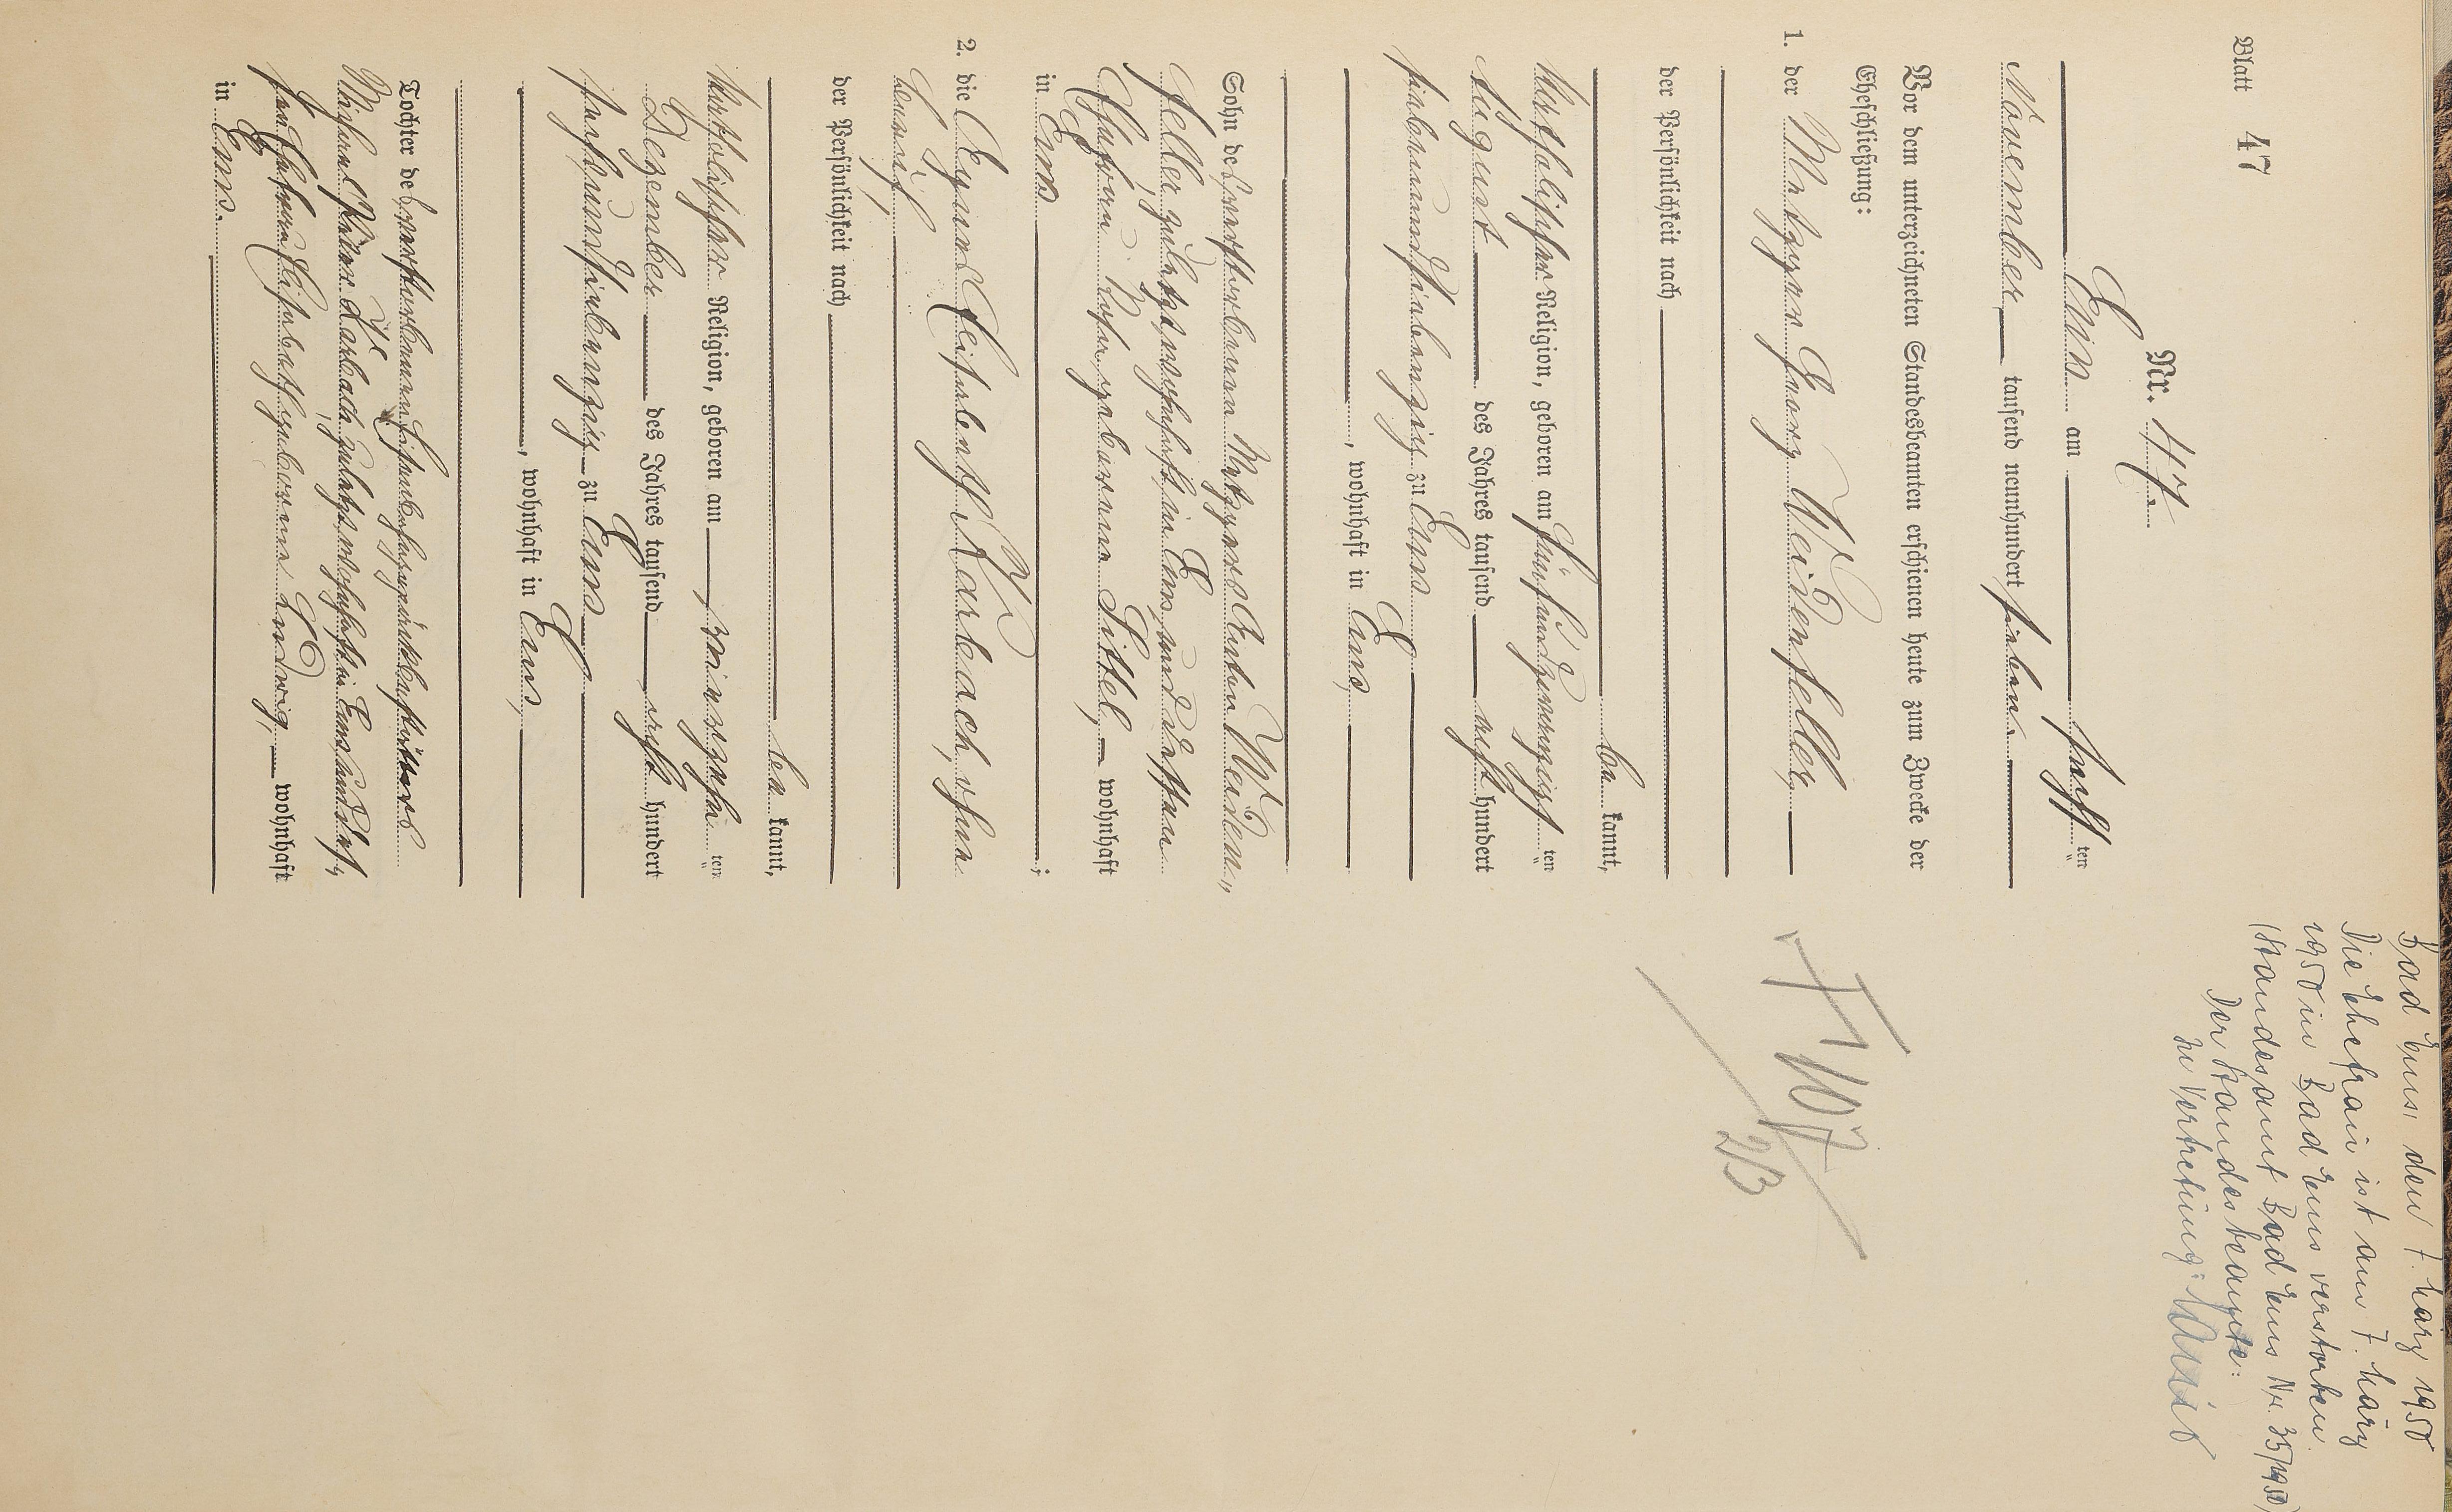 Blatt 47
Nr. 47.
Ems am sechsten
November tausend neunhundert sieben.
Vor dem unterzeichneten Standesbeamten erschienen heute zum Zwecke der
Eheschließung:
1. der Metzger Georg Weidenfeller,
der Persönlichkeit nach
bekannt,
katholischer Religion, geboren am fünfundzwanzigsten
August des Jahres tausend achthundert
siebenundsiebenzig zu Ems
, wohnhaft in Ems,
Sohn des verstorbenen Metzgers Anton Weiden-
feller, zuletzt wohnhaft in Ems, und dessen
Ehefrau geborene Sittel, wohnhaft
in Ems;
2. die Elisabeth Karbach, ohne
Beruf,
der Persönlichkeit nach
bekannt,
katholischer Religion, geboren am
Dezember des Jahres tausend achthundert
sechsundsiebenzig zu Ems
, wohnhaft in Ems,
Tochter des verstorbenen
Karbach, zuletzt wohnhaft in Ems, und dessen
Ehefrau Elisabeth geborene Ludwig, wohnhaft
in Ems.
Bad Ems, den 7. März 1950
Die Ehefrau ist am 7. März
1950 in Bad Ems verstorben
(Standesamt Bad Ems Nr. 35/1950)
Der Standesbeamte:
In Vertretung: